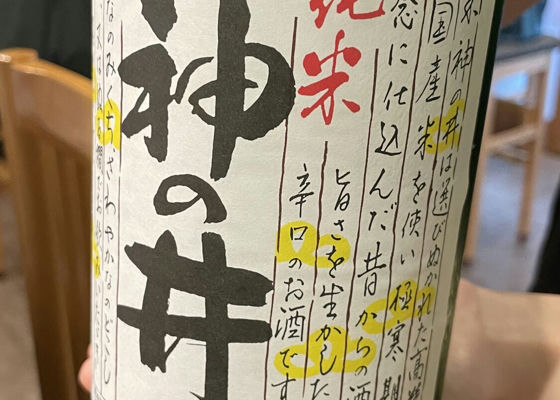 神の井は選びぬかれた高
国産米を使い極寒期
念に仕込んだ昔からの酒
旨さを生かした
辛口のお酒です
純米
神の井
なのみくち、さわやかなのどごし